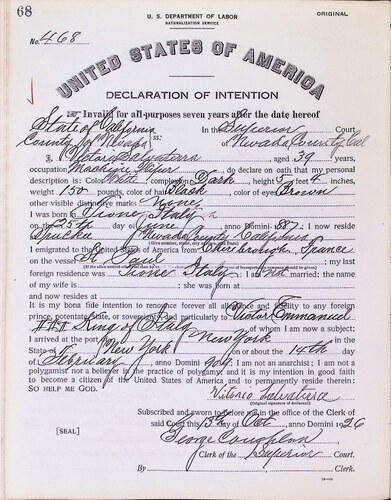 68
U. S. DEPARTMENT OF LABOR
NATURALIZATION SERVICE
ORIGINAL
No. 468
UNITED STATES OF AMERICA
DECLARATION OF INTENTION
Invalid for all purposes seven years after the date hereof
State of California
County of Nevada ss: In the Superior Court
of Nevada County Cal
I, Victorio Salvaterra, aged 39 years,
occupation, do declare on oath that my personal
description is: Color White, complexion Dark, height 5 feet 4 inches,
weight 150 pounds, color of hair Black, color of eyes Brown
other visible distinctive marks None
I was born in Tione, Italy
on the 25th day of June, anno Domini 1887; I now reside
at Truckee Nevada County California
(Give number, street, city or town, and State.)
I emigrated to the United States of America from Cherbourgh France
on the vessel St Paul; my last
(If the alien arrived otherwise than by vessel, the character of conveyance or name of transportation company should be given.)
foreign residence was Tione, Italy; I am not married; the name
of my wife is; she was born at
and now resides at
It is my bona fide intention to renounce forever all allegiance and fidelity to any foreign
prince, potentate, state, or sovereignty, and particularly to Victor Emmanuel
III King of Italy, of whom I am now a subject;
I arrived at the port of New York, in the
State of New York, on or about the 14th day
of February, anno Domini; I am not an anarchist; I am not a
polygamist nor a believer in the practice of polygamy; and it is my intention in good faith
to become a citizen of the United States of America and to permanently reside therein:
SO HELP ME GOD.
(Original signature of declarant)
Subscribed and sworn to before me in the office of the Clerk of
said Court this day of Oct, anno Domini 1926
[SEAL]
George
Clerk of the Superior Court.
By, Clerk.